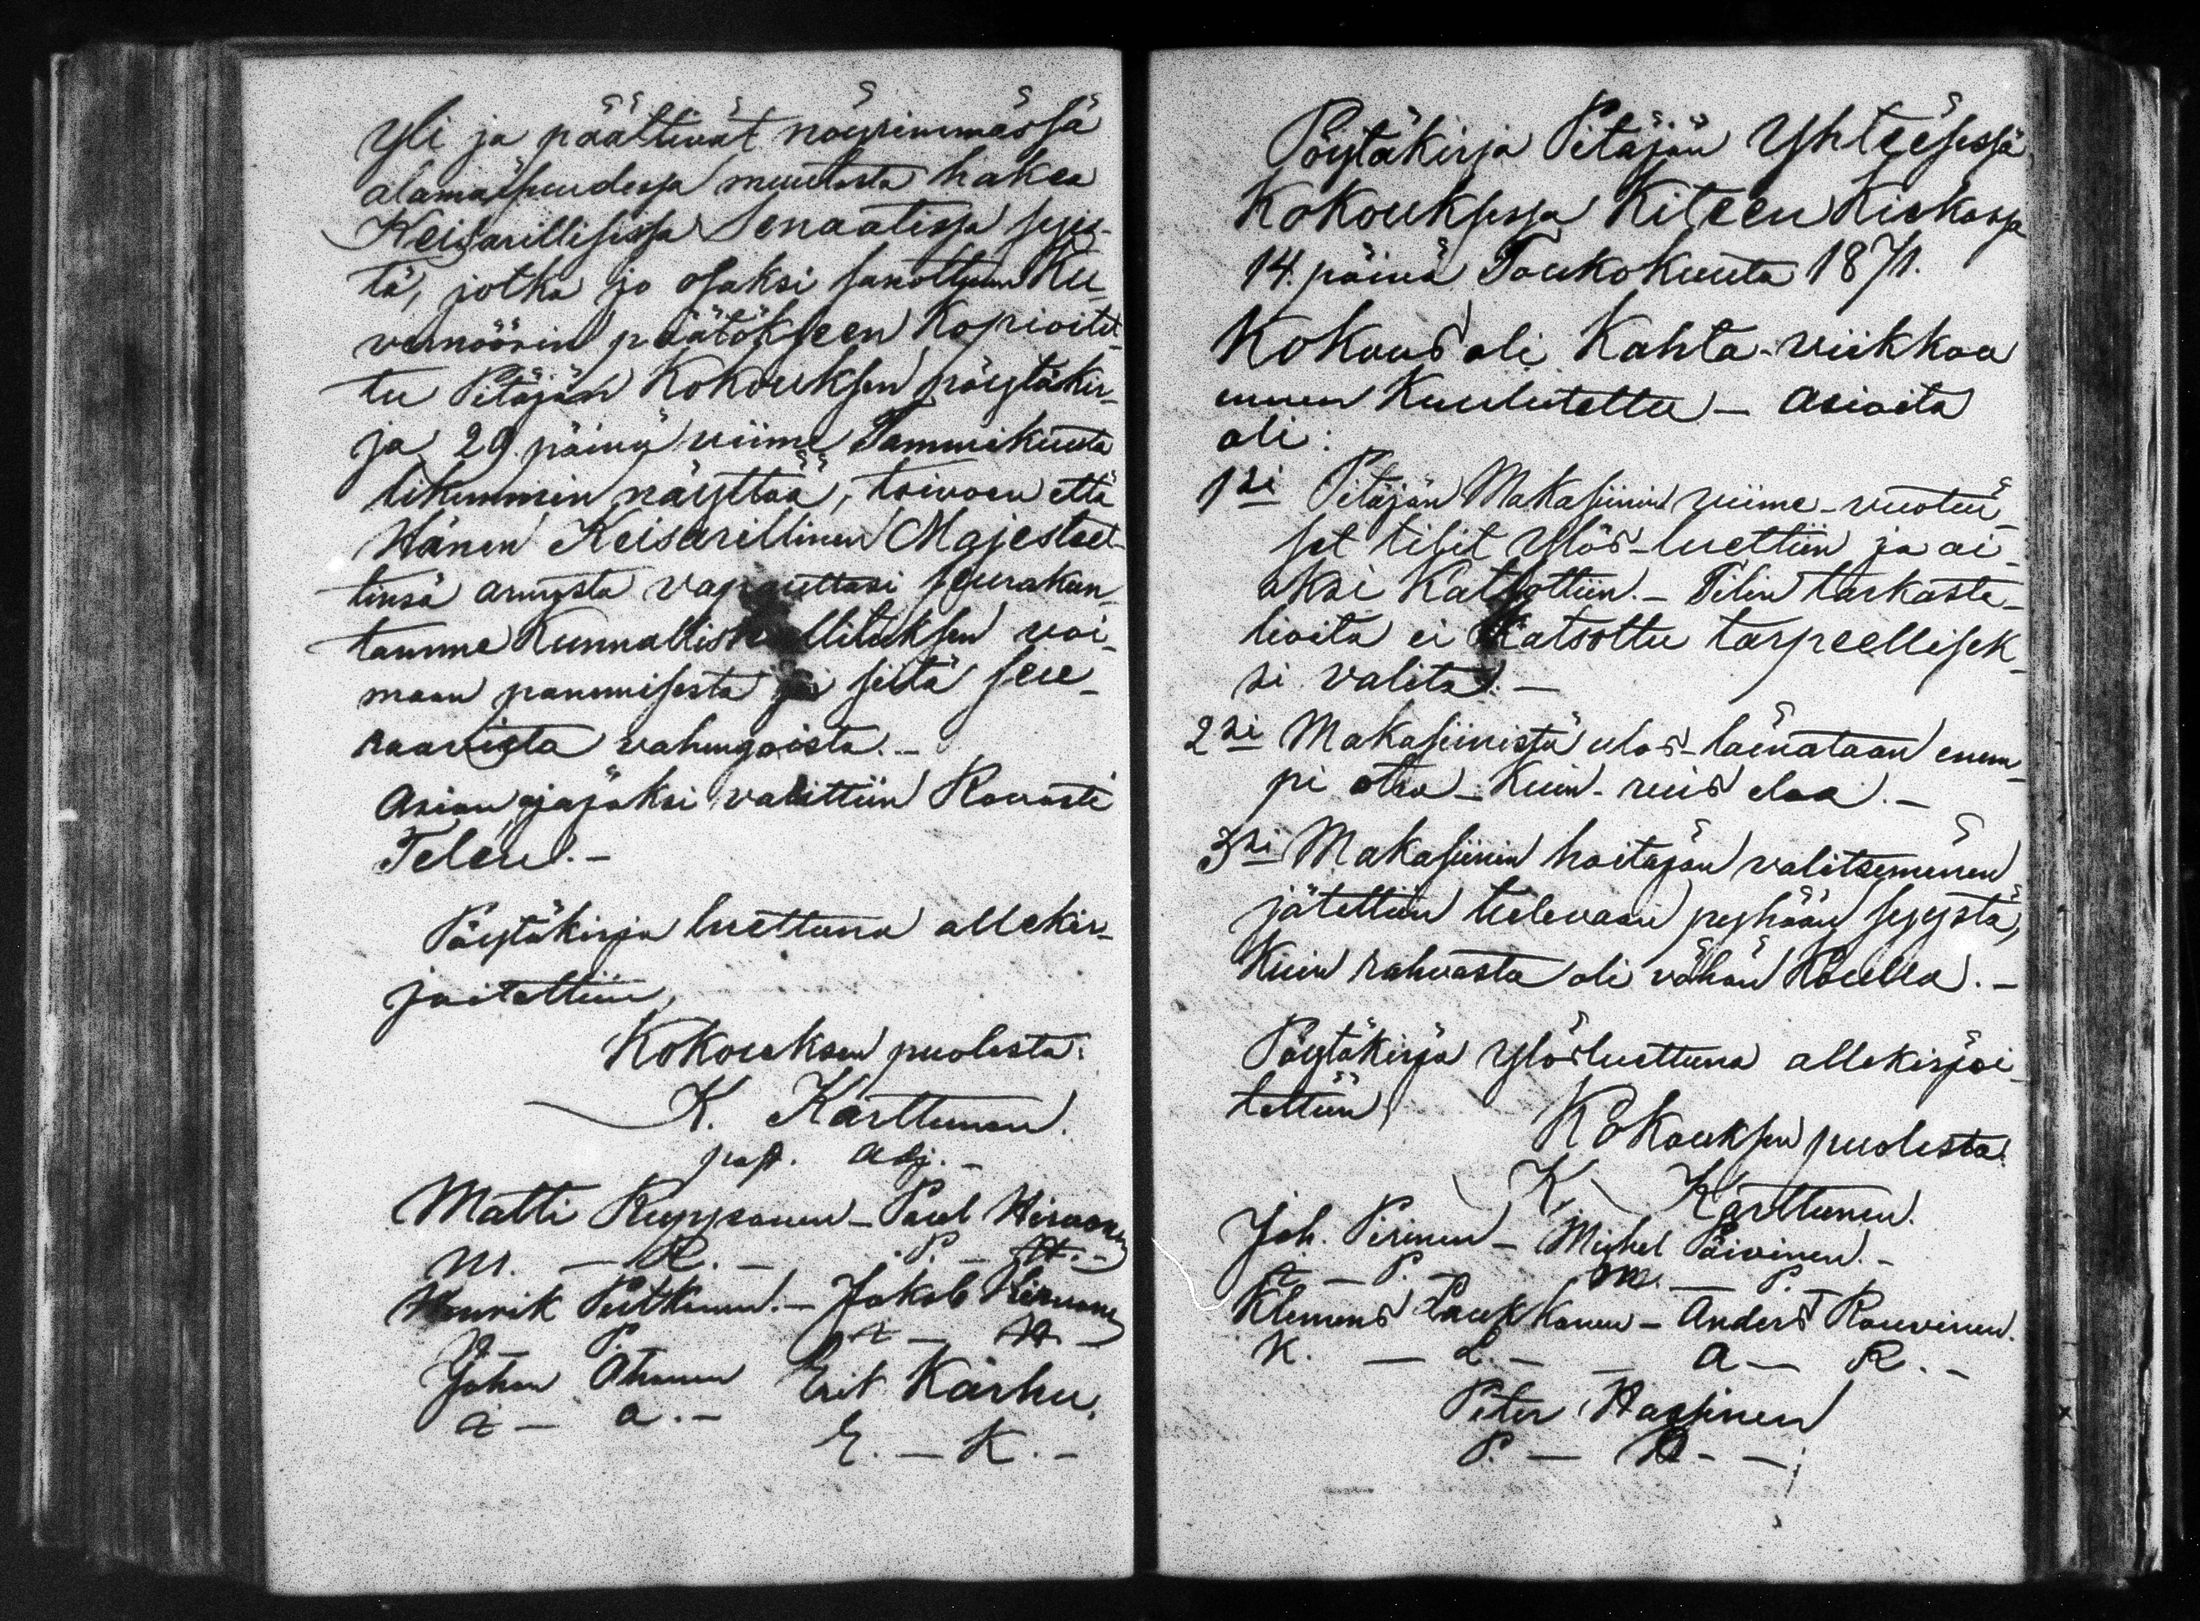 yli ja päättivät nöyrimmässä
alamaisuudessa muutosta hakea
Keisarillisessa Senaatissa syys-
tä, jotka jo osaksi sanottuun Ku-
vernöörin päätökseen kopioitet-
tu Pitäjän Kokouksen pöytäkir-
ja 29. päivä viime Tammikuuta
likemmin näyttää, toivoen että
Hänen Keisarillinen Majesteet-
tinsä armosta vapauttasi seurakun-
tamme Kunnallishallituksen voi-
maan panemisesta ja siitä seu-
raavista vahingoista. –
Asian ajajaksi valittiin Rovasti
Telén. –
Pöytäkirja luettuna allekir-
joitettiin,
Kokouksen puolesta:
K. Karttunen.
past. adj. –
Matti Ruppsonen – Paul Hirvonen
M. – R. – P. – H. –
Henrik Puttonen. – Jakob Hirvonen
P. – H. –
Johan Ahonen Erik Karhu.
a. – E. – K. –
Pöytäkirja Pitäjän Yhteisessä
Kokouksessa Kiteen Kirkossa
14. päivä Toukokuuta 1871.
Kokous oli Kahta-viikkoa
ennen Kuulutettu – asioita
oli:
1si Pitäjän Makasiinin viime-vuotuu-
set tilit ylös-luettiin ja oi-
aksi Katsottiin. – Tilin tarkaste-
lioita ei Katsottu tarpeellisek-
si valita. –
2si Makasiinista ulos-lainataan enem-
pi otra-Kuin-ruis eloa. –
3si Makasiinin hoitajan valitseminen
jätettiin tulevaan pyhään syystä,
Kuin rahvasta oli vähän Koulla. –
Pöytäkirja ylösluettuna allekirjoi-
tettiin,
Kokouksen puolesta:
K. Karttunen.
Joh. Pirinen – Michel Päivinen. –
P. – M. – P. –
Klemens Laukkanen – Anders Rouvinen.
K. – L. – A – R. –
Peter Hassinen
P. – H – –